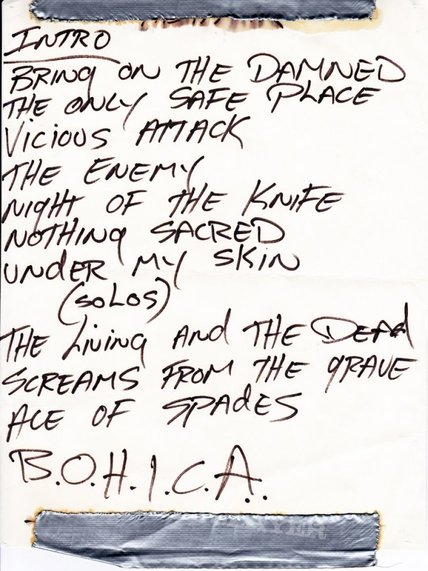 INTRO
BRING ON THE DAMNED
THE ONLY SAFE PLACE
VICIOUS ATTACK
THE ENEMY
NIGHT OF THE KNIFE
NOTHING SACRED
UNDER MY SKIN
(SOLOS)
THE LIVING AND THE DEAD
SCREAMS FROM THE GRAVE
ACE OF SPADES
B.O.H.I.C.A.